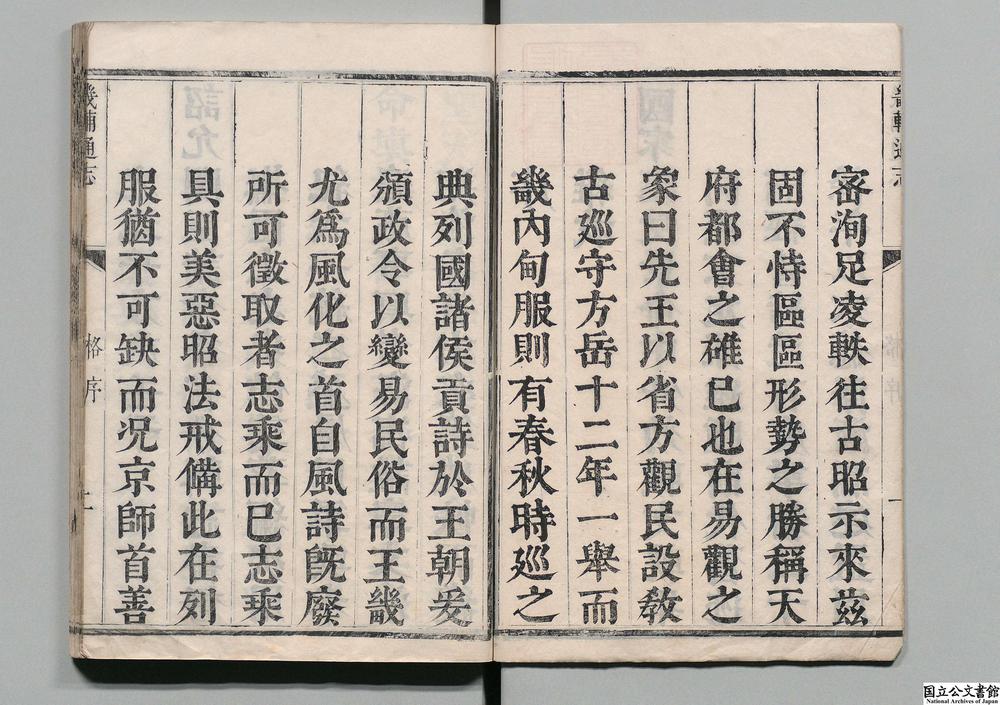 密洵足凌軼往古昭示來茲
固不恃區區形勢之勝稱天
府都會之雄已也在易觀之
象曰先王以省方觀民設敎
古巡守方岳十二年一舉而
畿內甸服則有春秋時巡之
典列國諸侯貢詩於王朝爰
頒政令以變易民俗而王畿
尤爲風化之首自風詩旣廢
所可徵取者志乘而已志乘
具則美惡昭法戒備此在列
服猶不可缺而况京師首善
畿輔通志
格序
二
国立公文書館
National Archives of Japan